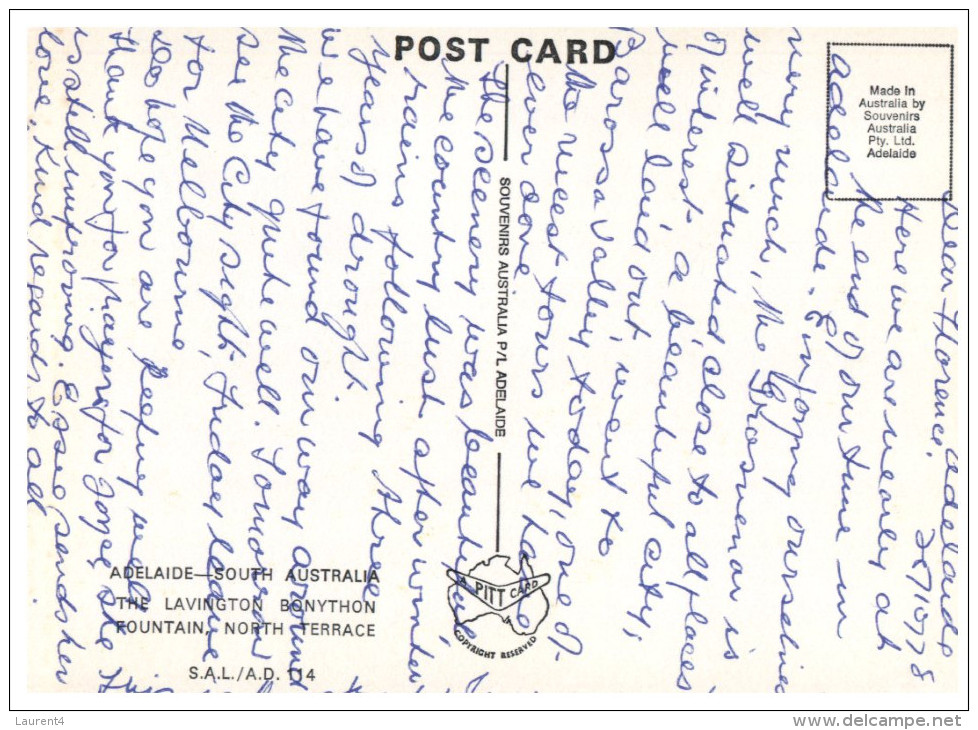 POST CARD
Made In
Australia by
Souvenirs
Australia
Pty. Ltd.
Adelaide
SOUVENIRS AUSTRALIA P/L ADELAIDE
Adelaide
2x/10/78
Dear Florence,
Here we are nearly at
the end of our time in
Adelaide. Enjoying ourselves
very much, the is
well situated, close to all places
of interest. a beautiful city,
well laid out, went to
Barossa Valley, today, one of
the nicest tours we have
ever done
The scenery was beautiful
the country lush after winter
rains following three
years of drought.
we have found our way around
the city quite well. Tomorrow
see the City sights, Friday leave
for Melbourne,
Do hope you are keeping well
thank you for prayers for Joyce, she
is still improving. Essie sends her
love. Kind regards to all
ADELAIDE—SOUTH AUSTRALIA
THE LAVINGTON BONYTHON
FOUNTAIN, NORTH TERRACE
S.A.L./A.D. 114
A PITT CARD
COPYRIGHT RESERVED
Laurent4
www.delcampe.net